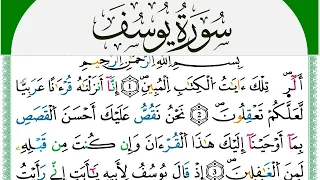 سُورَةُ يُوسُفَ
بِسْمِ اللَّهِ الرَّحْمَٰنِ الرَّحِيمِ
الٓرۚ تِلۡكَ ءَايَٰتُ ٱلۡكِتَٰبِ ٱلۡمُبِينِ ١ إِنَّآ أَنزَلۡنَٰهُ قُرۡءَٰنًا عَرَبِيّٗا
لَّعَلَّكُمۡ تَعۡقِلُونَ ٢ نَحۡنُ نَقُصُّ عَلَيۡكَ أَحۡسَنَ ٱلۡقَصَصِ
بِمَآ أَوۡحَيۡنَآ إِلَيۡكَ هَٰذَا ٱلۡقُرۡءَانَ وَإِن كُنتَ مِن قَبۡلِهِۦ
لَمِنَ ٱلۡغَٰفِلِينَ ٣ إِذۡ قَالَ يُوسُفُ لِأَبِيهِ يَٰٓأَبَتِ إِنِّي رَأَيۡتُ